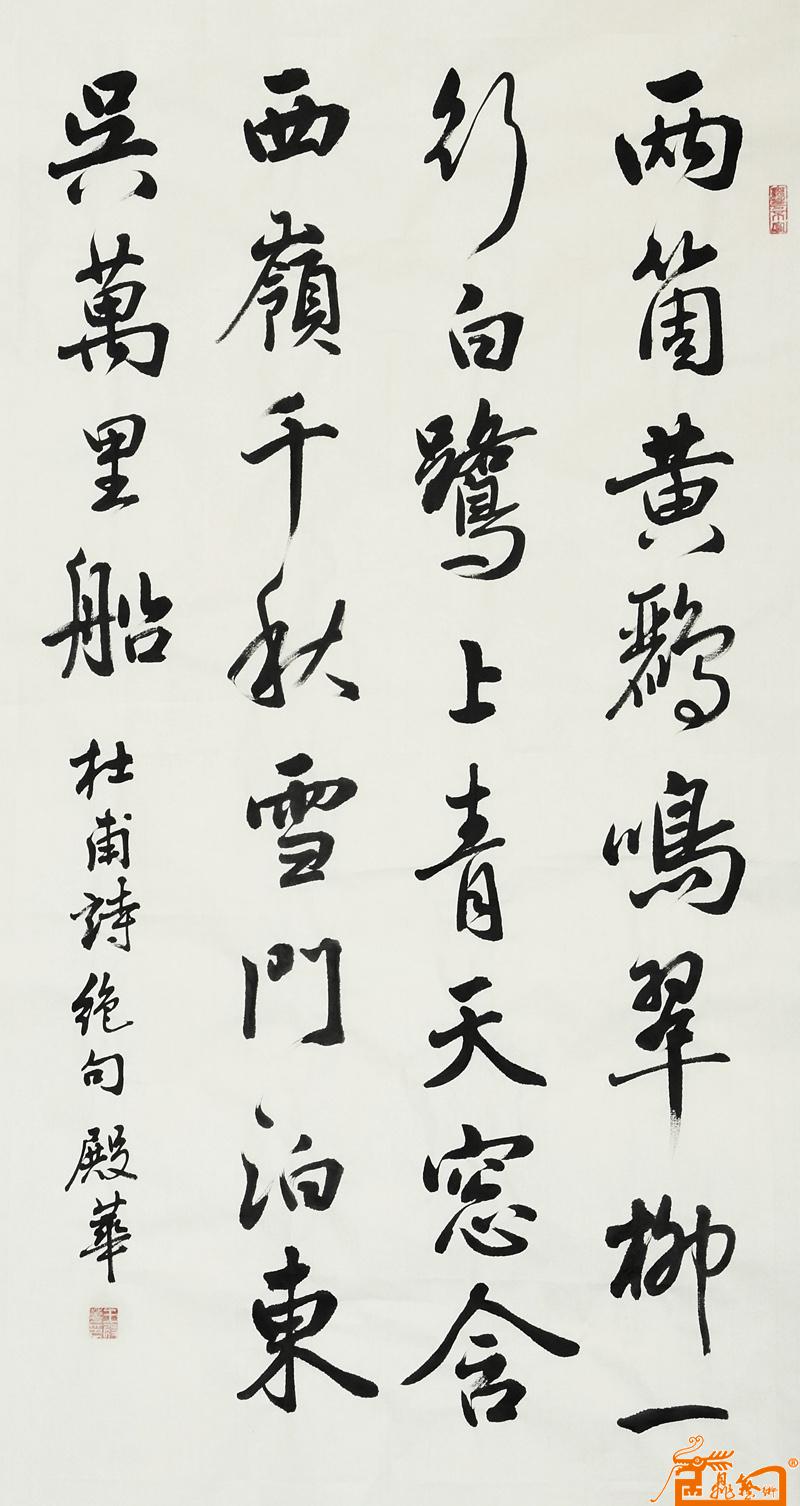 兩箇黃鸝鳴翠柳一
行白鷺上青天窓含
西嶺千秋雪門泊東
吳萬里船
杜甫詩絶句 殿華